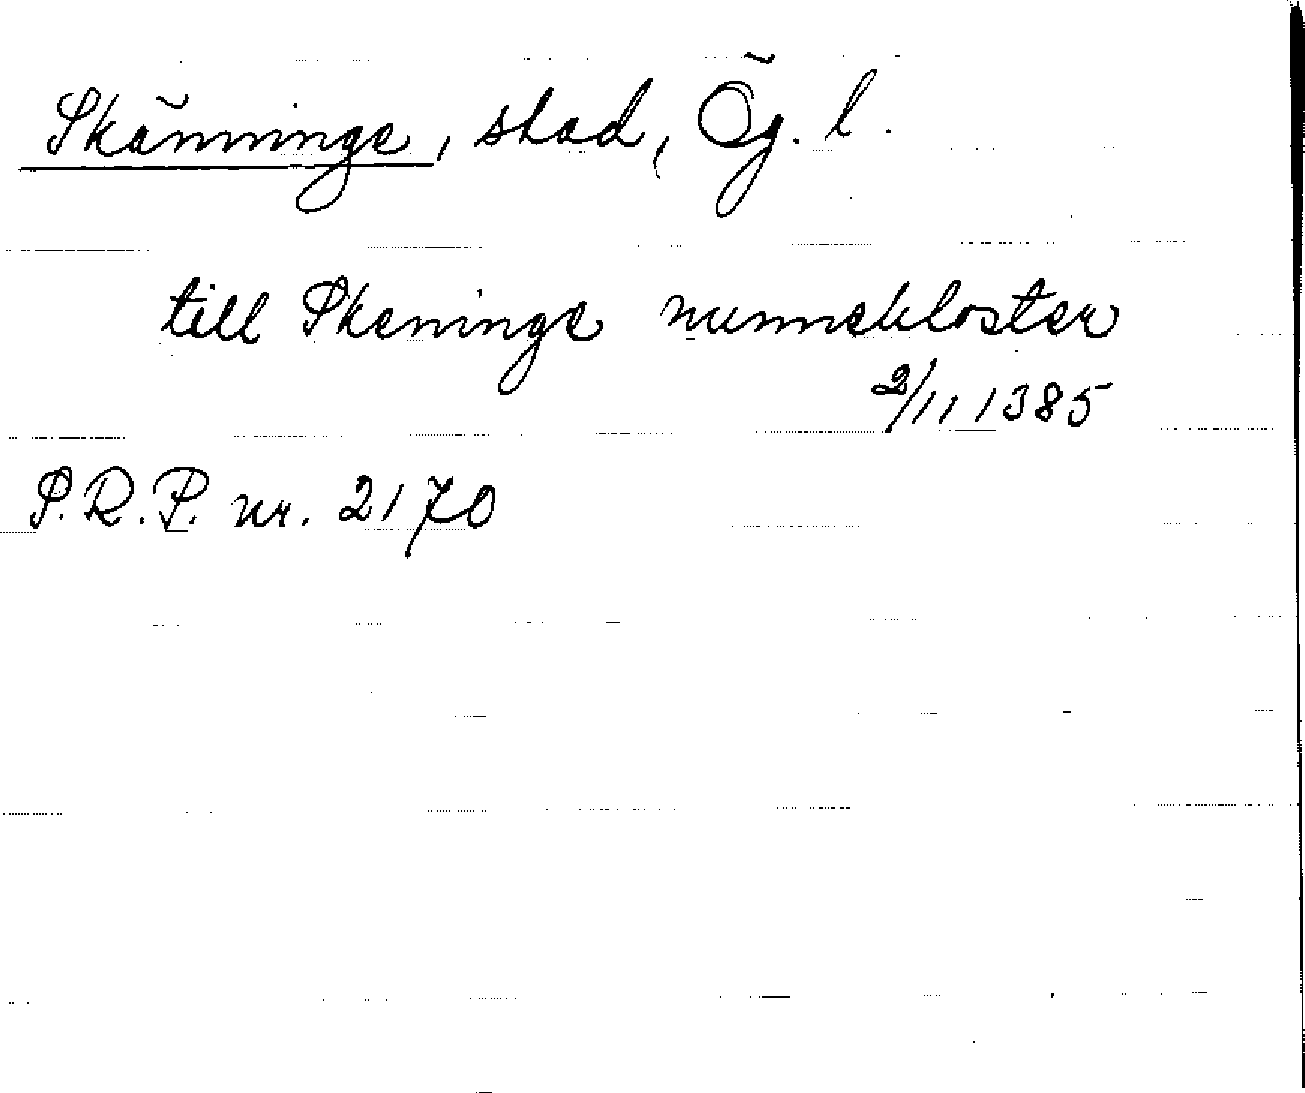 Skänninge, stad, Ög. l.
till Skeninge nunnekloster
2/11 1385
S.R.P. nr. 2170